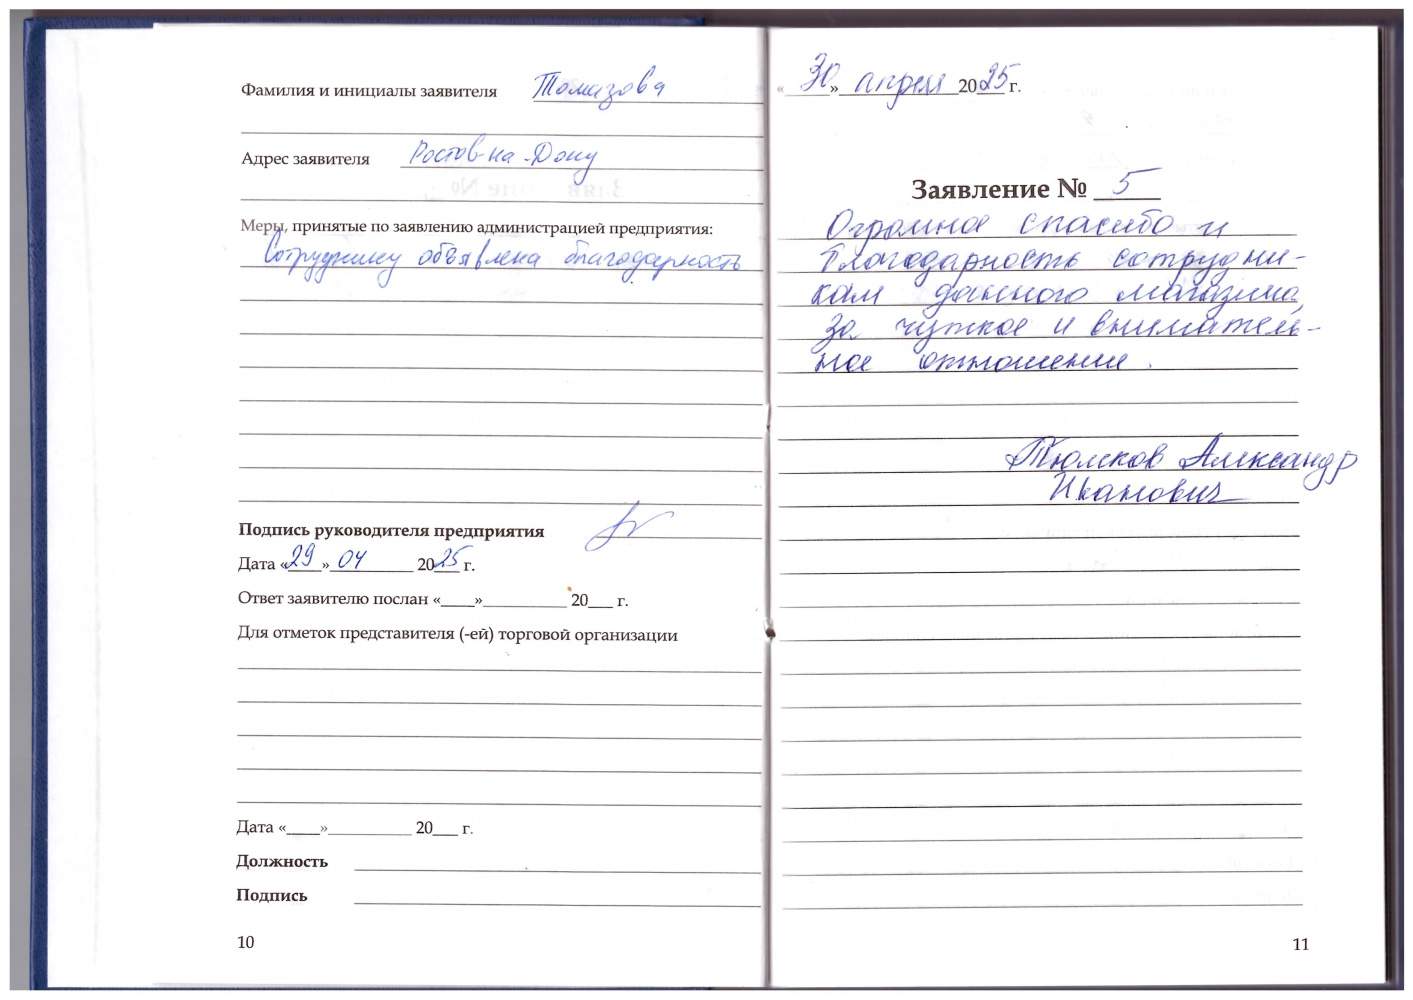 Фамилия и инициалы заявителя Томазова
Адрес заявителя Ростов-на-Дону
Меры, принятые по заявлению администрацией предприятия:
Сотруднику объявлена благодарность
Подпись руководителя предприятия
Дата «29» 04 2025 г.
Ответ заявителю послан «____»__________ 20___ г.
Для отметок представителя (-ей) торговой организации
Дата «____»__________ 20___ г.
Должность
Подпись
10
«30» апреля 2025 г.
Заявление № 5
Огромное спасибо и
благодарность сотрудни-
кам данного магазина
за чуткое и вниматель-
ное отношение.
Тюмсков Александр
Иванович
11